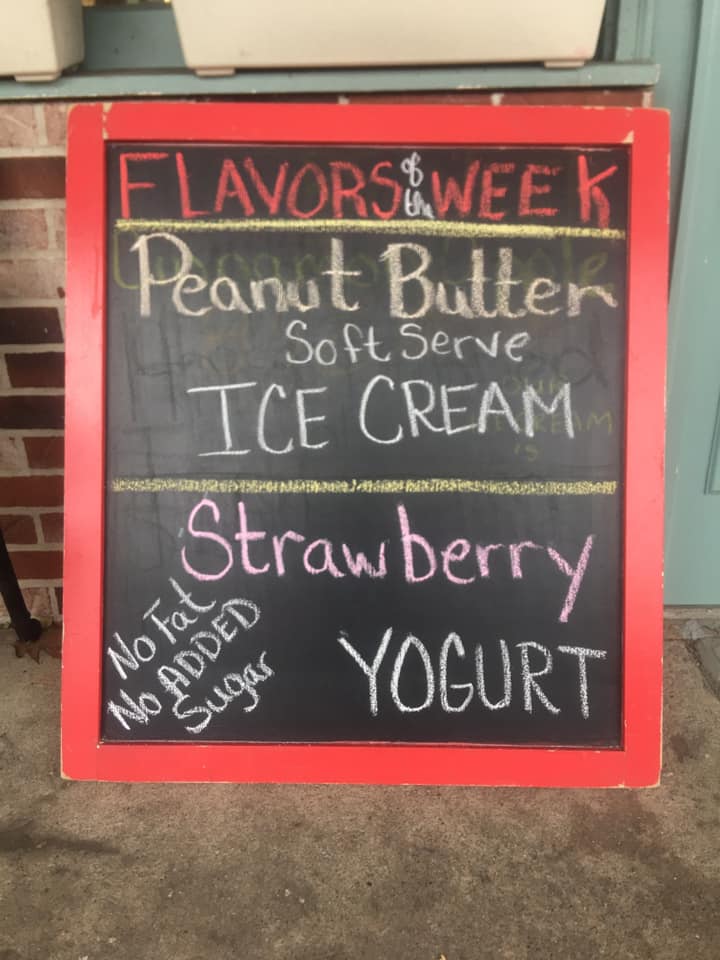 FLAVORS of the WEEK
Peanut Butter
Soft Serve
ICE CREAM
Strawberry
No Fat
No ADDED
Sugar
YOGURT